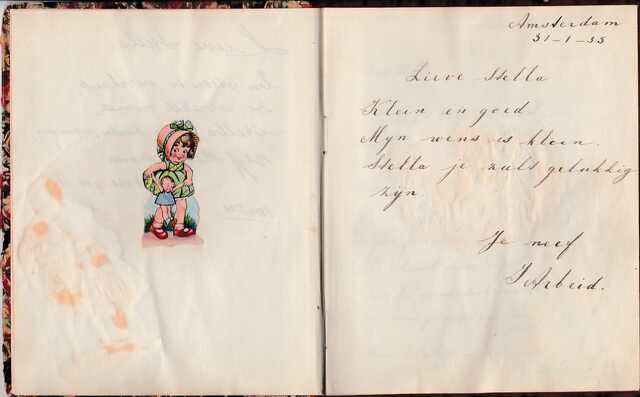 Amsterdam
31-1-35
Lieve Stella
Klein en goed
Mijn wens is klein.
Stella je zult gelukkig
zijn
Je neef
J Arbeid.